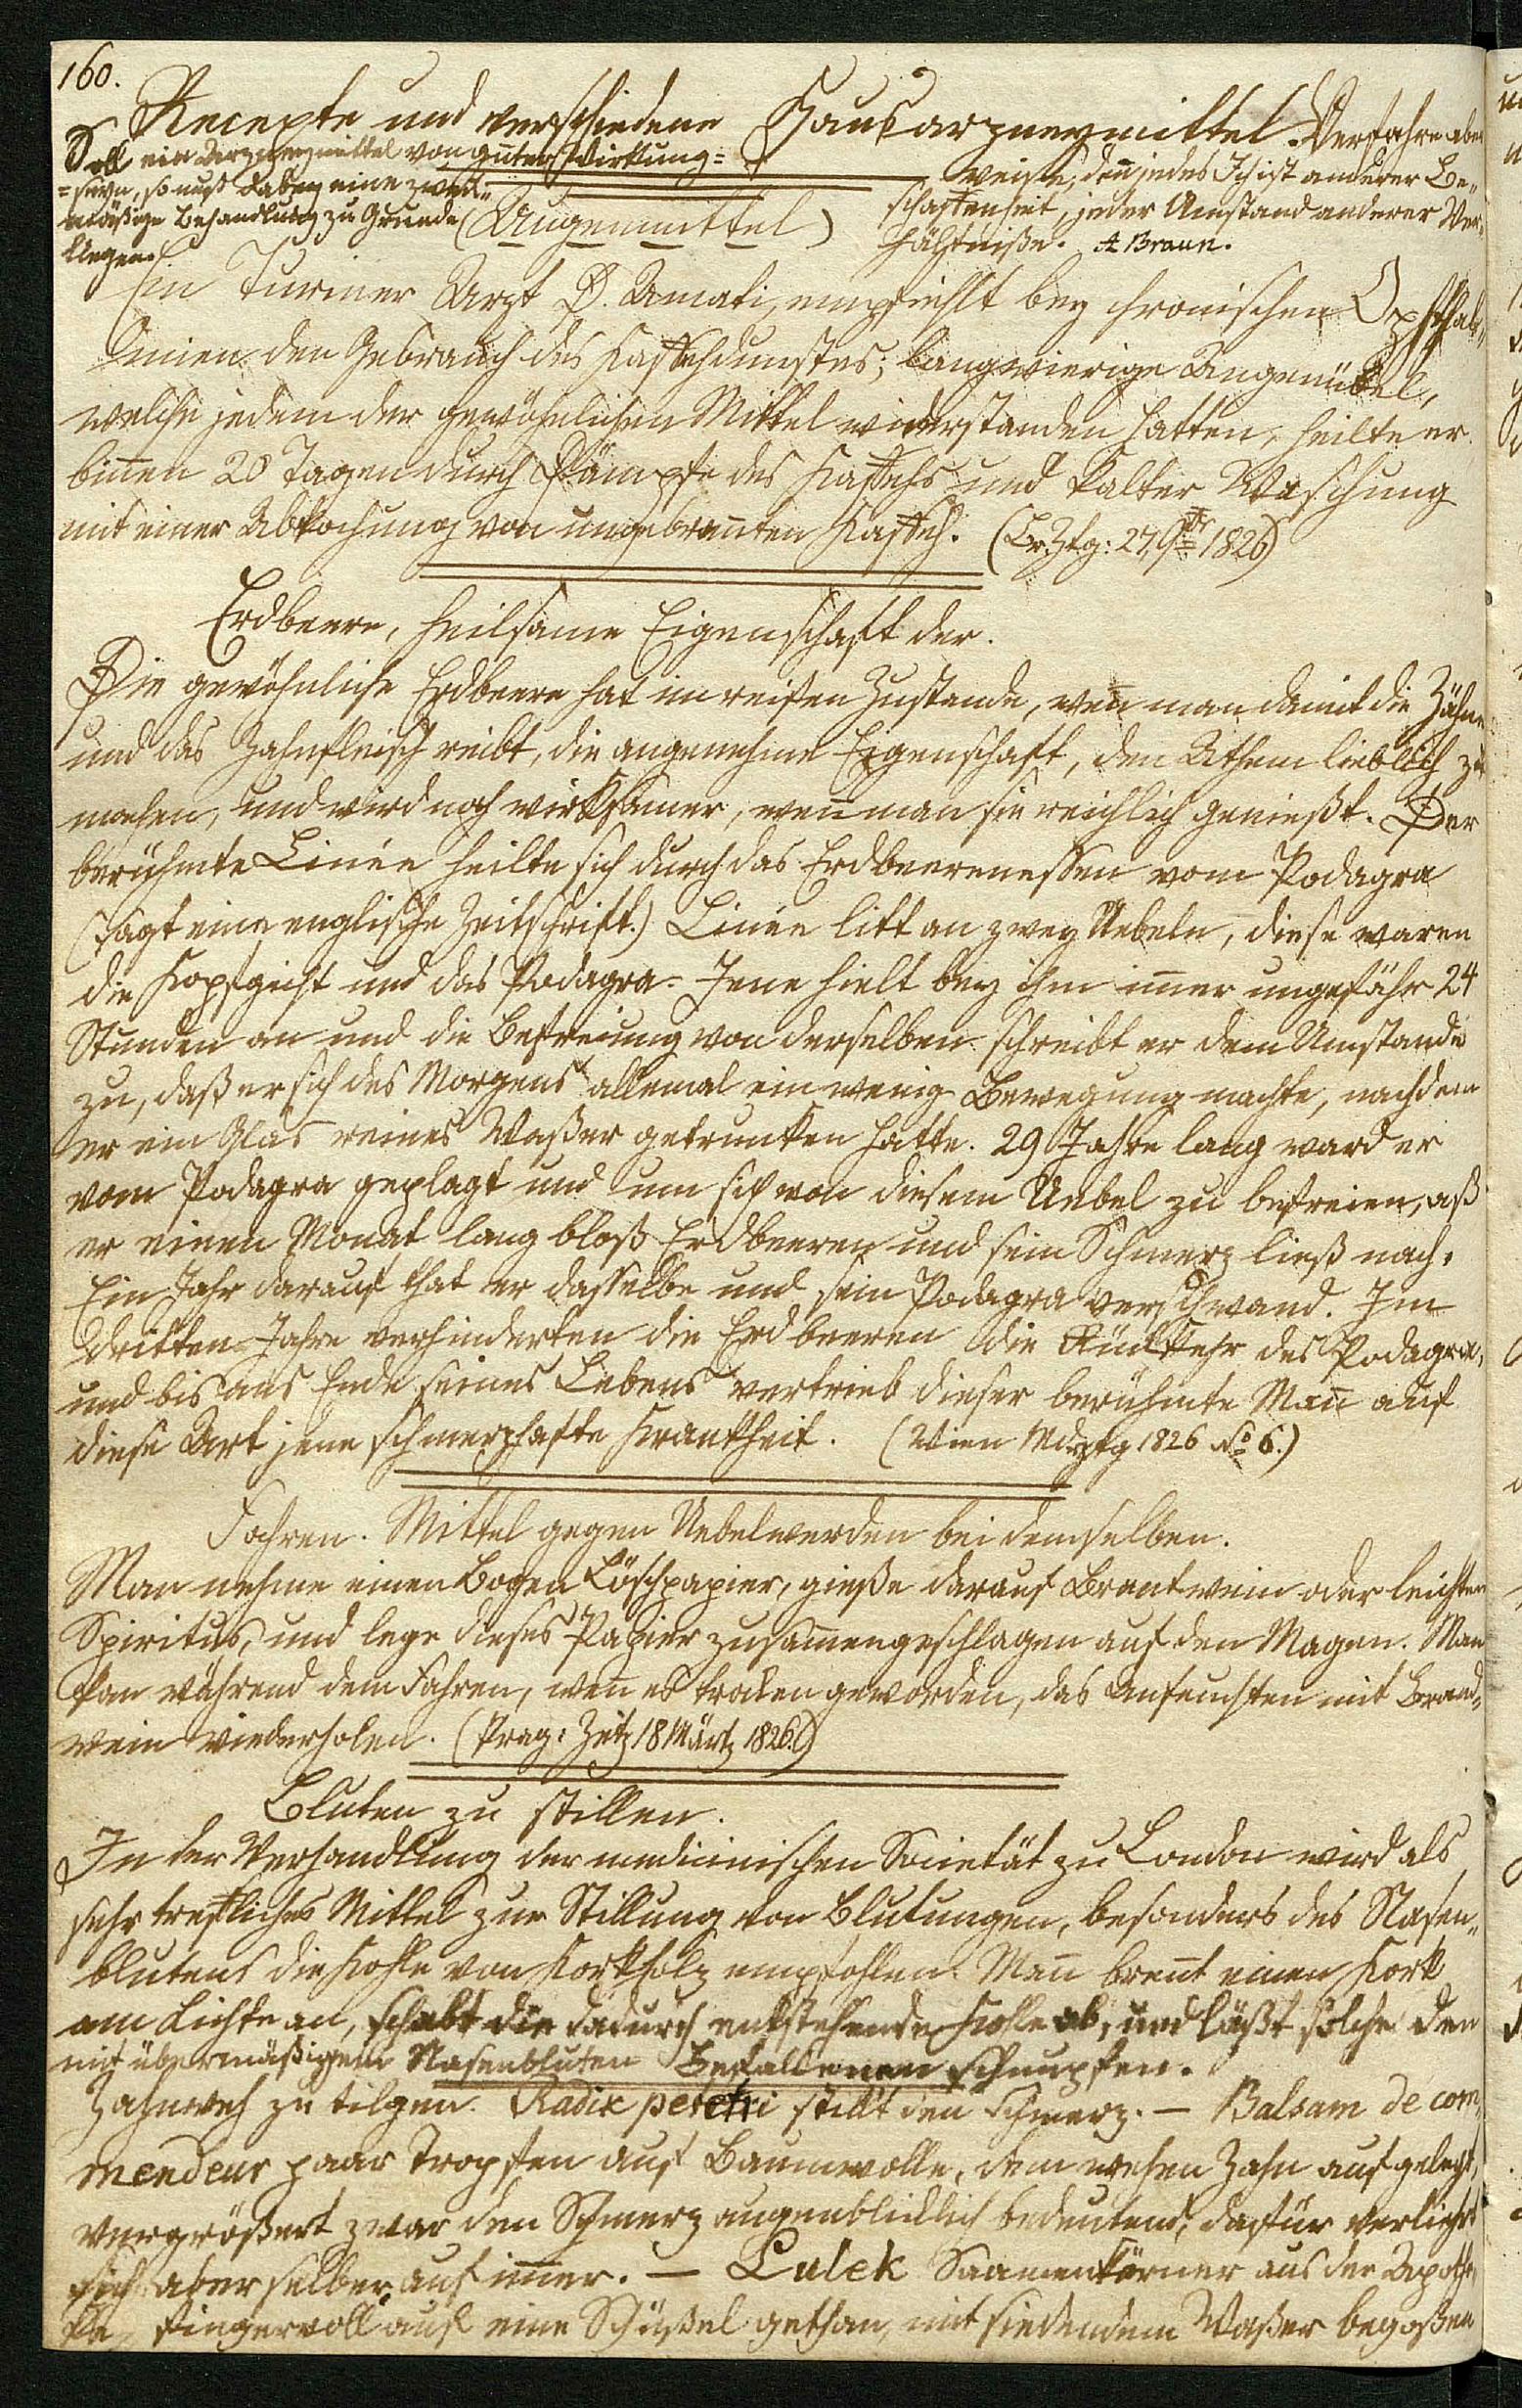 160.
Recepte und verschiedene Hausarzneymittel. Verfahre aber
Soll ein Arzneymittel von guter Wirkung
seyn, so muß dabey eine zweck-
mäßige Behandlung zu Grunde
liegen.
weise, den̄ jedes Ich ist anderer Be„
schaffenheit, jeder Umstand anderer Ver„
hältniße. A Braun.
(Augenmittel)
Ein Turiner Arzt D. Amati, empfiehlt bey chronischen Opfthal„
mien den Gebrauch des Kaffehdunstes; langwierige Augenübel,
welche jedem der gewöhnlichen Mittel widerstanden hatten, heilte er
biñen 20 Tagen durch Dämpfe des Kaffehs und kalter Waschung
mit einer Abkochung von ungebran̄ten Kaffeh. (Br. Ztg: 27, 1826)
Erdbeere, heilsame Eigenschaft der.
Die gewöhnliche Erdbeere hat im reifen Zustande, wen̄ man damit die Zähne
und das Zahnfleisch reibt, die angenehme Eigenschaft, den Athem lieblich zu
machen, und wird noch wirksamer, wen̄ man sie reichlich genießt. Der
berühmte Linée heilte sich durch das Erdbeerenessen vom Podagra
(sagt eine englische Zeitschrift.) Linée litt an zwey Uebeln, diese waren
die Kopfgicht und das Podagra- Jene hielt bey ihm im̄er ungefähr 24
Stunden an und die Befreiung von derselben schreibt er dem Umstande
zu, daß er sich des Morgens allemal ein wenig Bewegung machte, nachdem
er ein Glas reines Waßer getrunken hatte. 29 Jahre lang ward er
vom Podagra geplagt und um sich von diesem Uebel zu befreien, aß
er einen Monat lang bloß Erdbeeren und sein Schmerz ließ nach.
Ein Jahr darauf that er dasselbe und sein Podagra verschwand. Im
dritten Jahre verhinderten die Erdbeeren die Rückkehr des Podagra,
und bis ans Ende seines Lebens vertrieb dieser berühmte Man̄ auf
diese Art jene schmerzhafte Krankheit. (Wien Mdztg 1826 No 6.)
Fahren. Mittel gegen Uebelwerden bei demselben.
Man nehme einen Bogen Löschpapier, gieße darauf Brantwein oder leichten
Spiritus, und lege dieses Papier zusam̄engeschlagen auf den Magen. Man
kan während dem Fahren, wen̄ es trocken geworden, das Anfeuchten mit Brand„
wein wiederholen. (Prag: Zeitg 18 Märtz 1826.)
Bluten zu stillen.
In der Verhandlung der medicinischen Societät zu London wird als
sehr treffliches Mittel zur Stillung von Blutungen, besonders des Nasen„
blutens die Kohle von Korkholz empfohlen. Man̄ bren̄t einen Kork
am Lichte an, schabt die dadurch entstehende Kohle ab, und läßt solche den
mit übermäßigem Nasenbluten Befallenen schnupfen.
Zahnweh zu tilgen. Radix peretri stillt den Schmerz. — Balsam de com„
mendeur paar Tropfen auf Baumwolle, dem wehen Zahn aufgelegt,
vergrößert zwar den Schmerz augenblicklich bedeutend, dafür verliehrt
sich aber selber auf im̄er. — Lulek Saamenkörner aus der Apothe„
ke, Fingervoll auf eine Schüßel gethan, mit siedendem Waßer begoßen